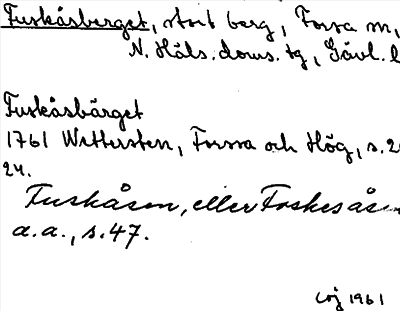 Fuskåsberget, stort berg, Forsa sn,
N. Häls. doms. tg, Gävl. l
Fuskåsbärget
1761 Wettersten, Forssa och Hög, s. 2
24.
Fuskåsen, eller Foskesåsen
a.a., s. 47.
1961